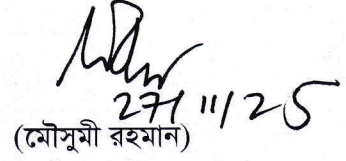 27/11/25
(মৌসুমী রহমান)